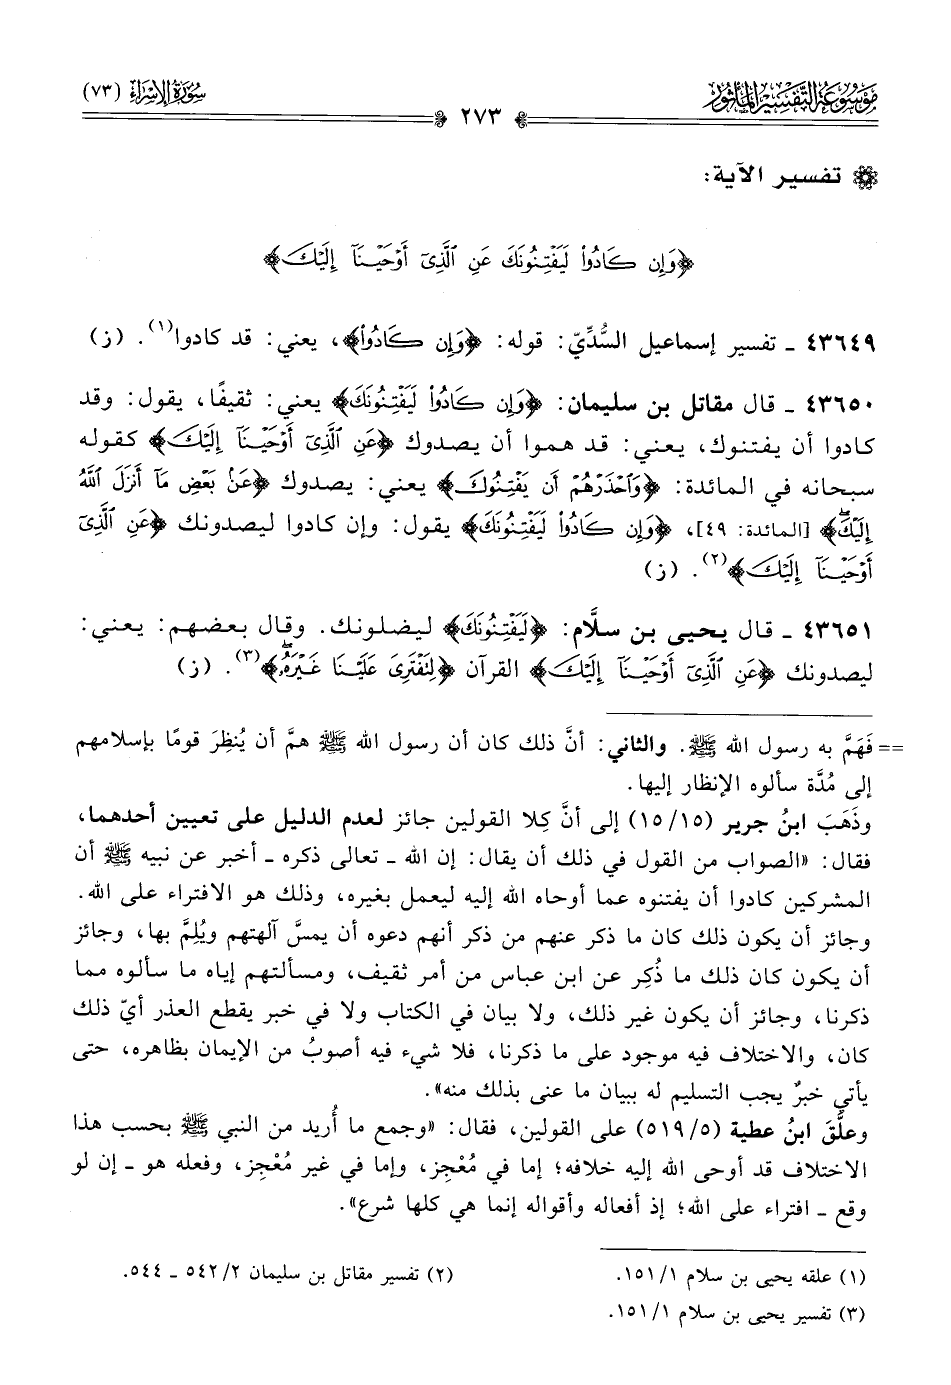 موسوعة التفسير المأثور
سورة الإسراء (٧٣)
٢٧٣
تفسير الآية:
﴿وَإِن كَادُوا۟ لَيَفْتِنُونَكَ عَنِ ٱلَّذِىٓ أَوْحَيْنَآ إِلَيْكَ﴾
٤٣٦٤٩ ـ تفسير إسماعيل السُّدِّيّ: قوله: ﴿وَإِن كَادُوا۟﴾، يعني: قد كادوا(١). (ز)
٤٣٦٥٠ ـ قال مقاتل بن سليمان: ﴿وَإِن كَادُوا۟ لَيَفْتِنُونَكَ﴾ يعني: ثقيفًا، يقول: وقد
كادوا أن يفتنوك، يعني: قد هموا أن يصدوك ﴿عَنِ ٱلَّذِىٓ أَوْحَيْنَآ إِلَيْكَ﴾ كقوله
سبحانه في المائدة: ﴿وَٱحْذَرْهُمْ أَن يَفْتِنُوكَ﴾ يعني: يصدوك ﴿عَنۢ بَعْضِ مَآ أَنزَلَ ٱللَّهُ
إِلَيْكَۖ﴾ [المائدة: ٤٩]، ﴿وَإِن كَادُوا۟ لَيَفْتِنُونَكَ﴾ يقول: وإن كادوا ليصدونك ﴿عَنِ ٱلَّذِىٓ
أَوْحَيْنَآ إِلَيْكَ﴾(٢). (ز)
٤٣٦٥١ ـ قال يحيى بن سلَّام: ﴿لَيَفْتِنُونَكَ﴾ ليضلونك. وقال بعضهم: يعني:
ليصدونك ﴿عَنِ ٱلَّذِىٓ أَوْحَيْنَآ إِلَيْكَ﴾ القرآن ﴿لِتَفْتَرِىَ عَلَيْنَا غَيْرَهُۥۖ﴾(٣). (ز)
== فَهَمَّ به رسول الله ﷺ. والثاني: أنَّ ذلك كان أن رسول الله ﷺ همَّ أن يُنظِرَ قومًا بإسلامهم
إلى مُدَّة سألوه الإنظار إليها.
وذَهَبَ ابنُ جرير (١٥/١٥) إلى أنَّ كِلا القولين جائز لعدم الدليل على تعيين أحدهما،
فقال: «الصواب من القول في ذلك أن يقال: إن الله ـ تعالى ذكره ـ أخبر عن نبيه ﷺ أن
المشركين كادوا أن يفتنوه عما أوحاه الله إليه ليعمل بغيره، وذلك هو الافتراء على الله.
وجائز أن يكون ذلك كان ما ذكر عنهم من ذكر أنهم دعوه أن يمسَّ آلهتهم ويُلِمَّ بها، وجائز
أن يكون كان ذلك ما ذُكِر عن ابن عباس من أمر ثقيف، ومسألتهم إياه ما سألوه مما
ذكرنا، وجائز أن يكون غير ذلك، ولا بيان في الكتاب ولا في خبر يقطع العذر أيّ ذلك
كان، والاختلاف فيه موجود على ما ذكرنا، فلا شيء فيه أصوبُ من الإيمان بظاهره، حتى
يأتي خبرٌ يجب التسليم له ببيان ما عنى بذلك منه».
وعلَّقَ ابنُ عطية (٥١٩/٥) على القولين، فقال: «وجمع ما أُريد من النبي ﷺ بحسب هذا
الاختلاف قد أوحى الله إليه خلافه؛ إما في مُعْجِز، وإما في غير مُعْجِز، وفعله هو ـ إن لو
وقع ـ افتراء على الله؛ إذ أفعاله وأقواله إنما هي كلها شرع».
(١) علقه يحيى بن سلام ١٥١/١.
(٢) تفسير مقاتل بن سليمان ٥٤٢/٢ ـ ٥٤٤.
(٣) تفسير يحيى بن سلام ١٥١/١.